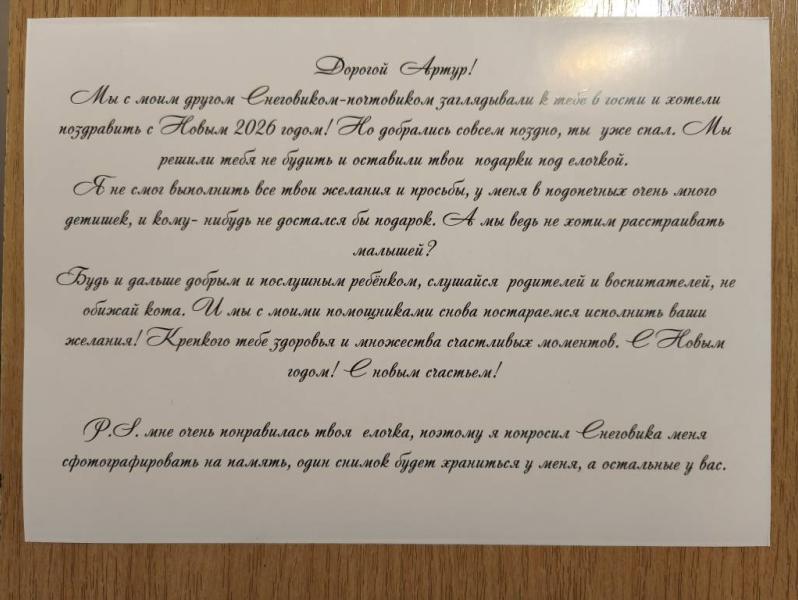 Дорогой Артур!
Мы с моим другом Снеговиком-почтовиком заглядывали к тебе в гости и хотели
поздравить с Новым 2026 годом! Но добрались совсем поздно, ты уже спал. Мы
решили тебя не будить и оставили твои подарки под елочкой.
Я не смог выполнить все твои желания и просьбы, у меня в подопечных очень много
детишек, и кому- нибудь не достался бы подарок. А мы ведь не хотим расстраивать
малышей?
Будь и дальше добрым и послушным ребёнком, слушайся родителей и воспитателей, не
обижай кота. И мы с моими помощниками снова постараемся исполнить ваши
желания! Крепкого тебе здоровья и множества счастливых моментов. С Новым
годом! С новым счастьем!
P.S. мне очень понравилась твоя елочка, поэтому я попросил Снеговика меня
сфотографировать на память, один снимок будет храниться у меня, а остальные у вас.